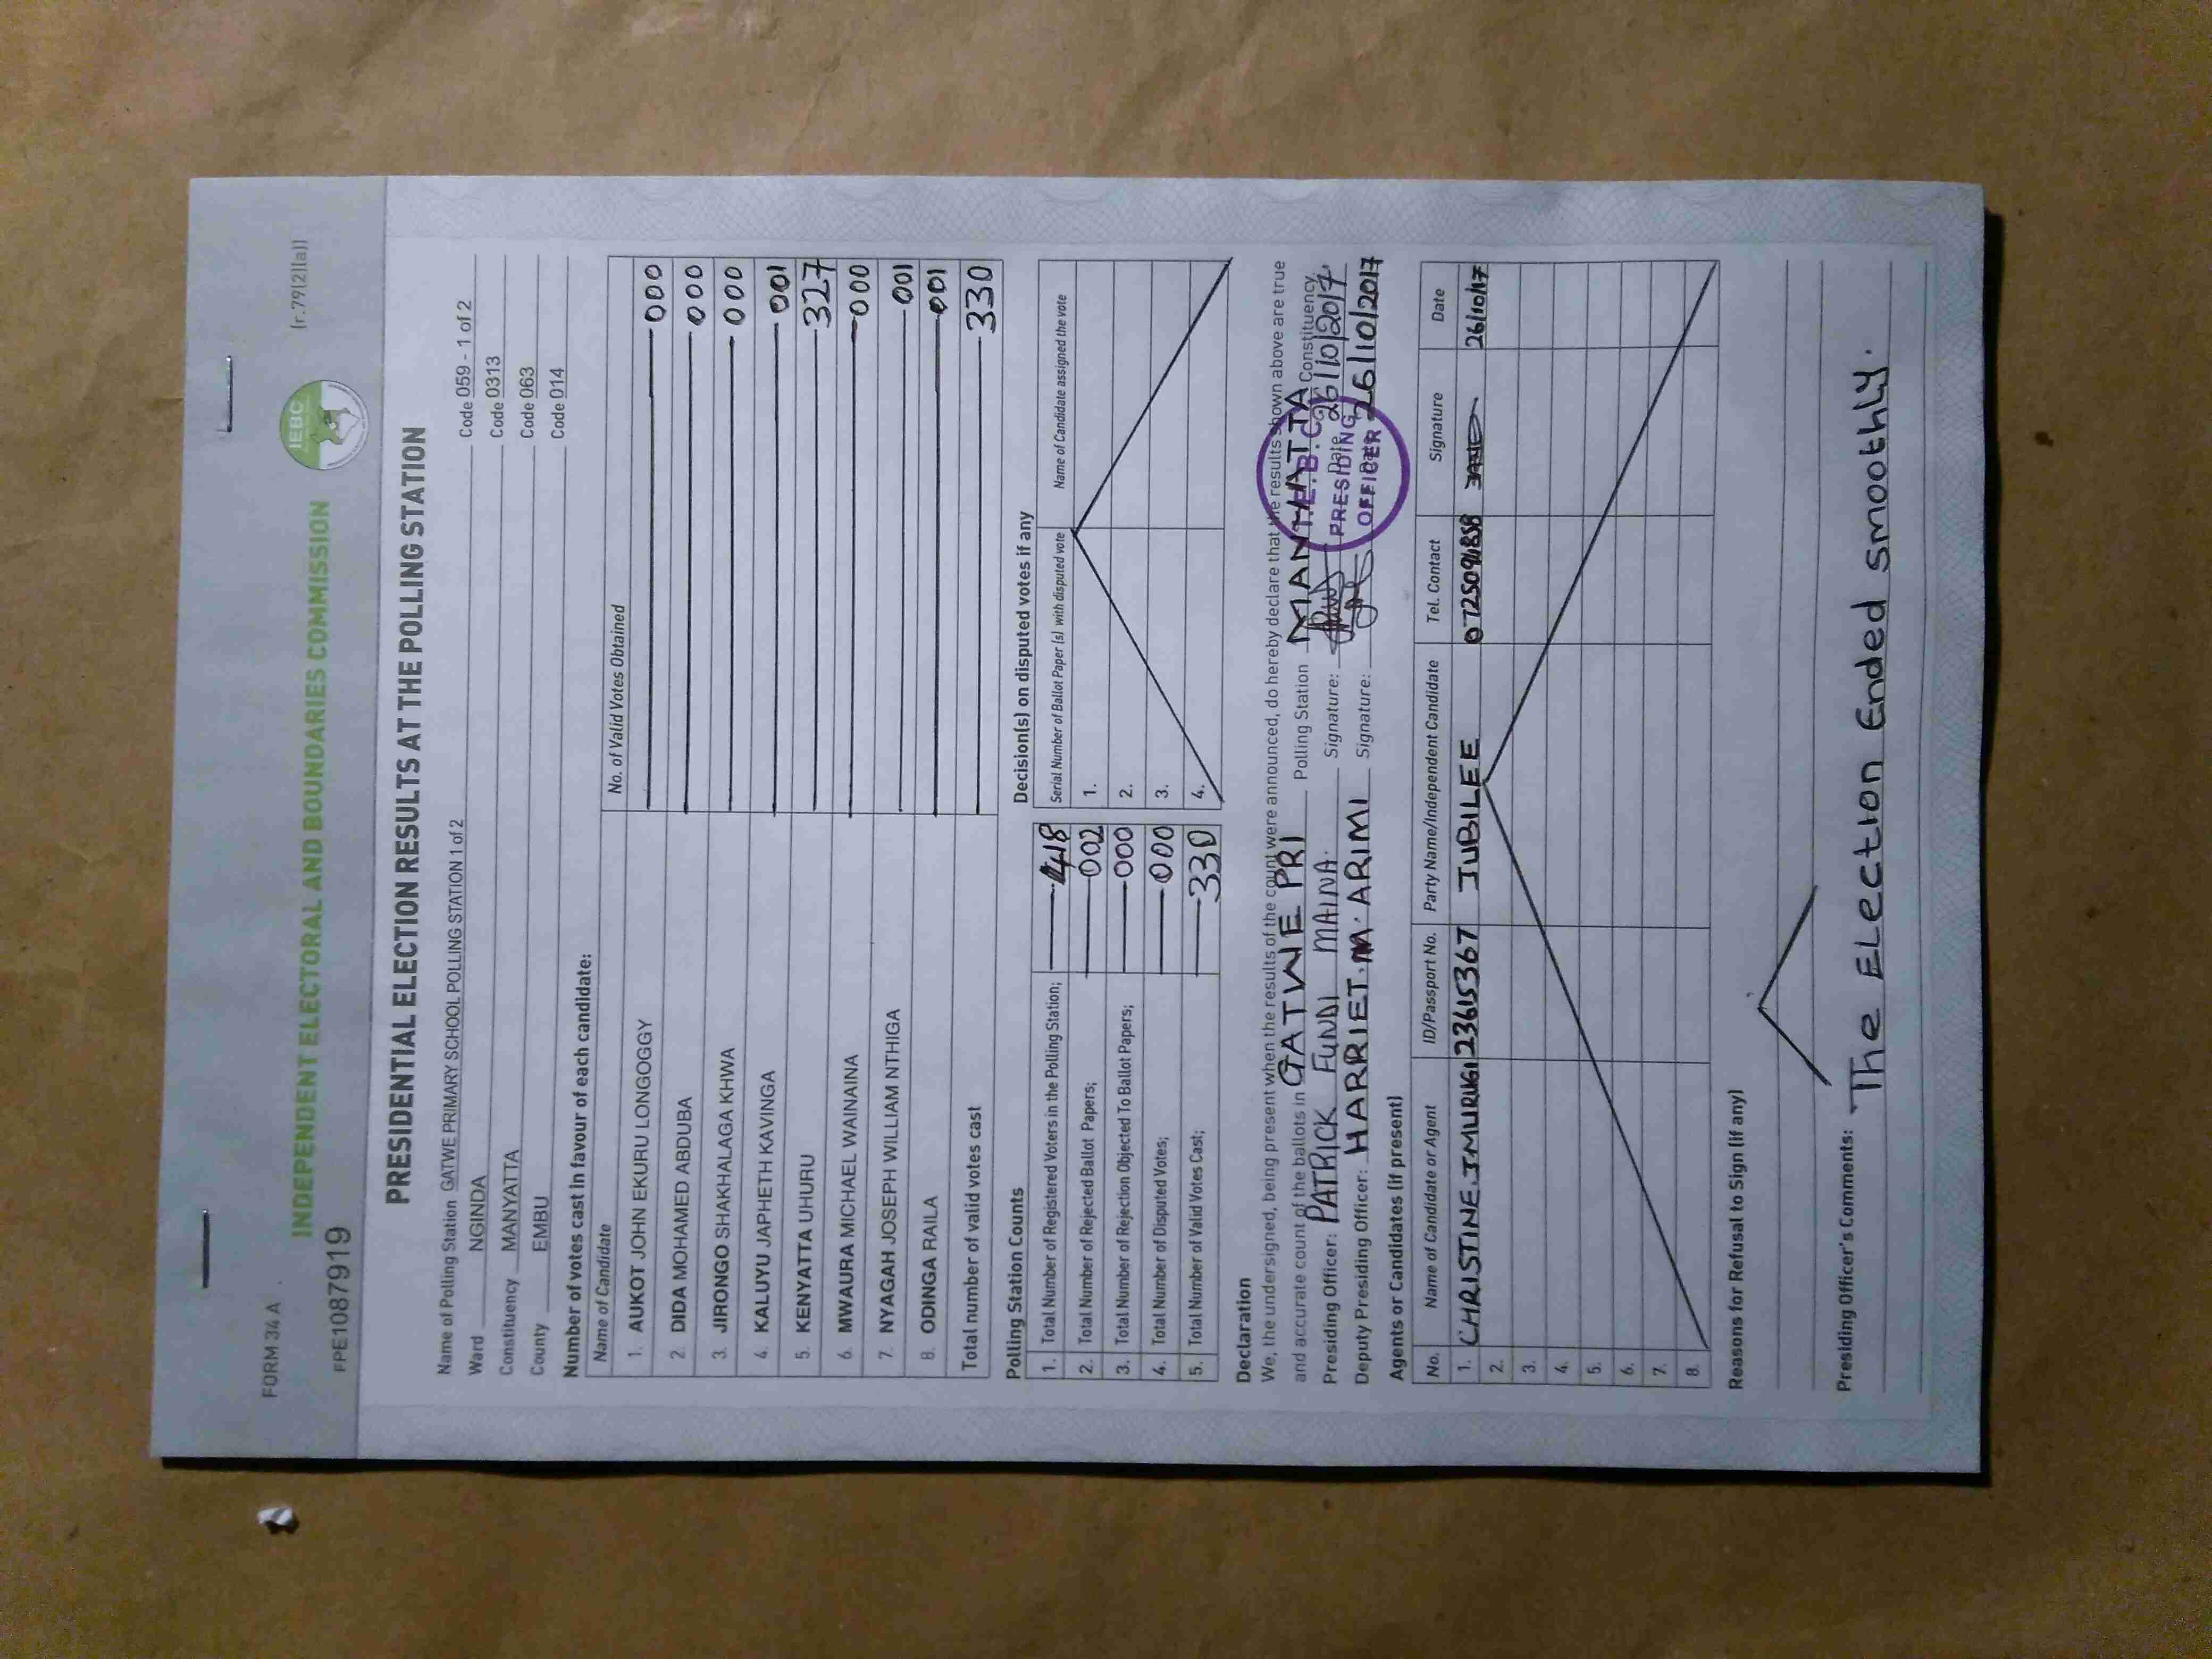 FORM 34 A
(r.79(2)(a))
IEBC
INDEPENDENT ELECTORAL AND BOUNDARIES COMMISSION
FPE1087919
PRESIDENTIAL ELECTION RESULTS AT THE POLLING STATION
Name of Polling Station GATWE PRIMARY SCHOOL POLLING STATION 1 of 2 Code 059 - 1 of 2
Ward NGINDA Code 0313
Constituency MANYATTA Code 063
County EMBU Code 014
Number of votes cast in favour of each candidate:
Name of Candidate No. of Valid Votes Obtained
1. AUKOT JOHN EKURU LONGOGGY 000
2. DIDA MOHAMED ABDUBA 000
3. JIRONGO SHAKHALAGA KHWA 000
4. KALUYU JAPHETH KAVINGA 001
5. KENYATTA UHURU 327
6. MWAURA MICHAEL WAINAINA 000
7. NYAGAH JOSEPH WILLIAM NTHIGA 001
8. ODINGA RAILA 001
Total number of valid votes cast 330
Polling Station Counts Decision(s) on disputed votes if any
Serial Number of Ballot Paper (s) with disputed vote Name of Candidate assigned the vote
1. Total Number of Registered Voters in the Polling Station; 418 1.
2. Total Number of Rejected Ballot Papers; 002 2.
3. Total Number of Rejection Objected To Ballot Papers; 000 3.
4. Total Number of Disputed Votes; 000 4.
5. Total Number of Valid Votes Cast; 330
Declaration
We, the undersigned, being present when the results of the count were announced, do hereby declare that the results shown above are true
and accurate count of the ballots in GATWE PRI Polling Station MANYATTA Constituency.
Presiding Officer: PATRICK FUNDI MAINA. Signature: Date 26/10/2017.
Deputy Presiding Officer: HARRIET. M. ARIMI Signature: 26/10/2017
I.E.B.C
PRESIDING
OFFICER
Agents or Candidates (if present)
No. Name of Candidate or Agent ID/Passport No. Party Name/Independent Candidate Tel. Contact Signature Date
1. CHRISTINE.I.MURUGI 23615367 JUBILEE 26/10/17
2.
3.
4.
5.
6.
7.
8.
Reasons for Refusal to Sign (if any)
Presiding Officer's Comments: The ELection Ended smoothly.